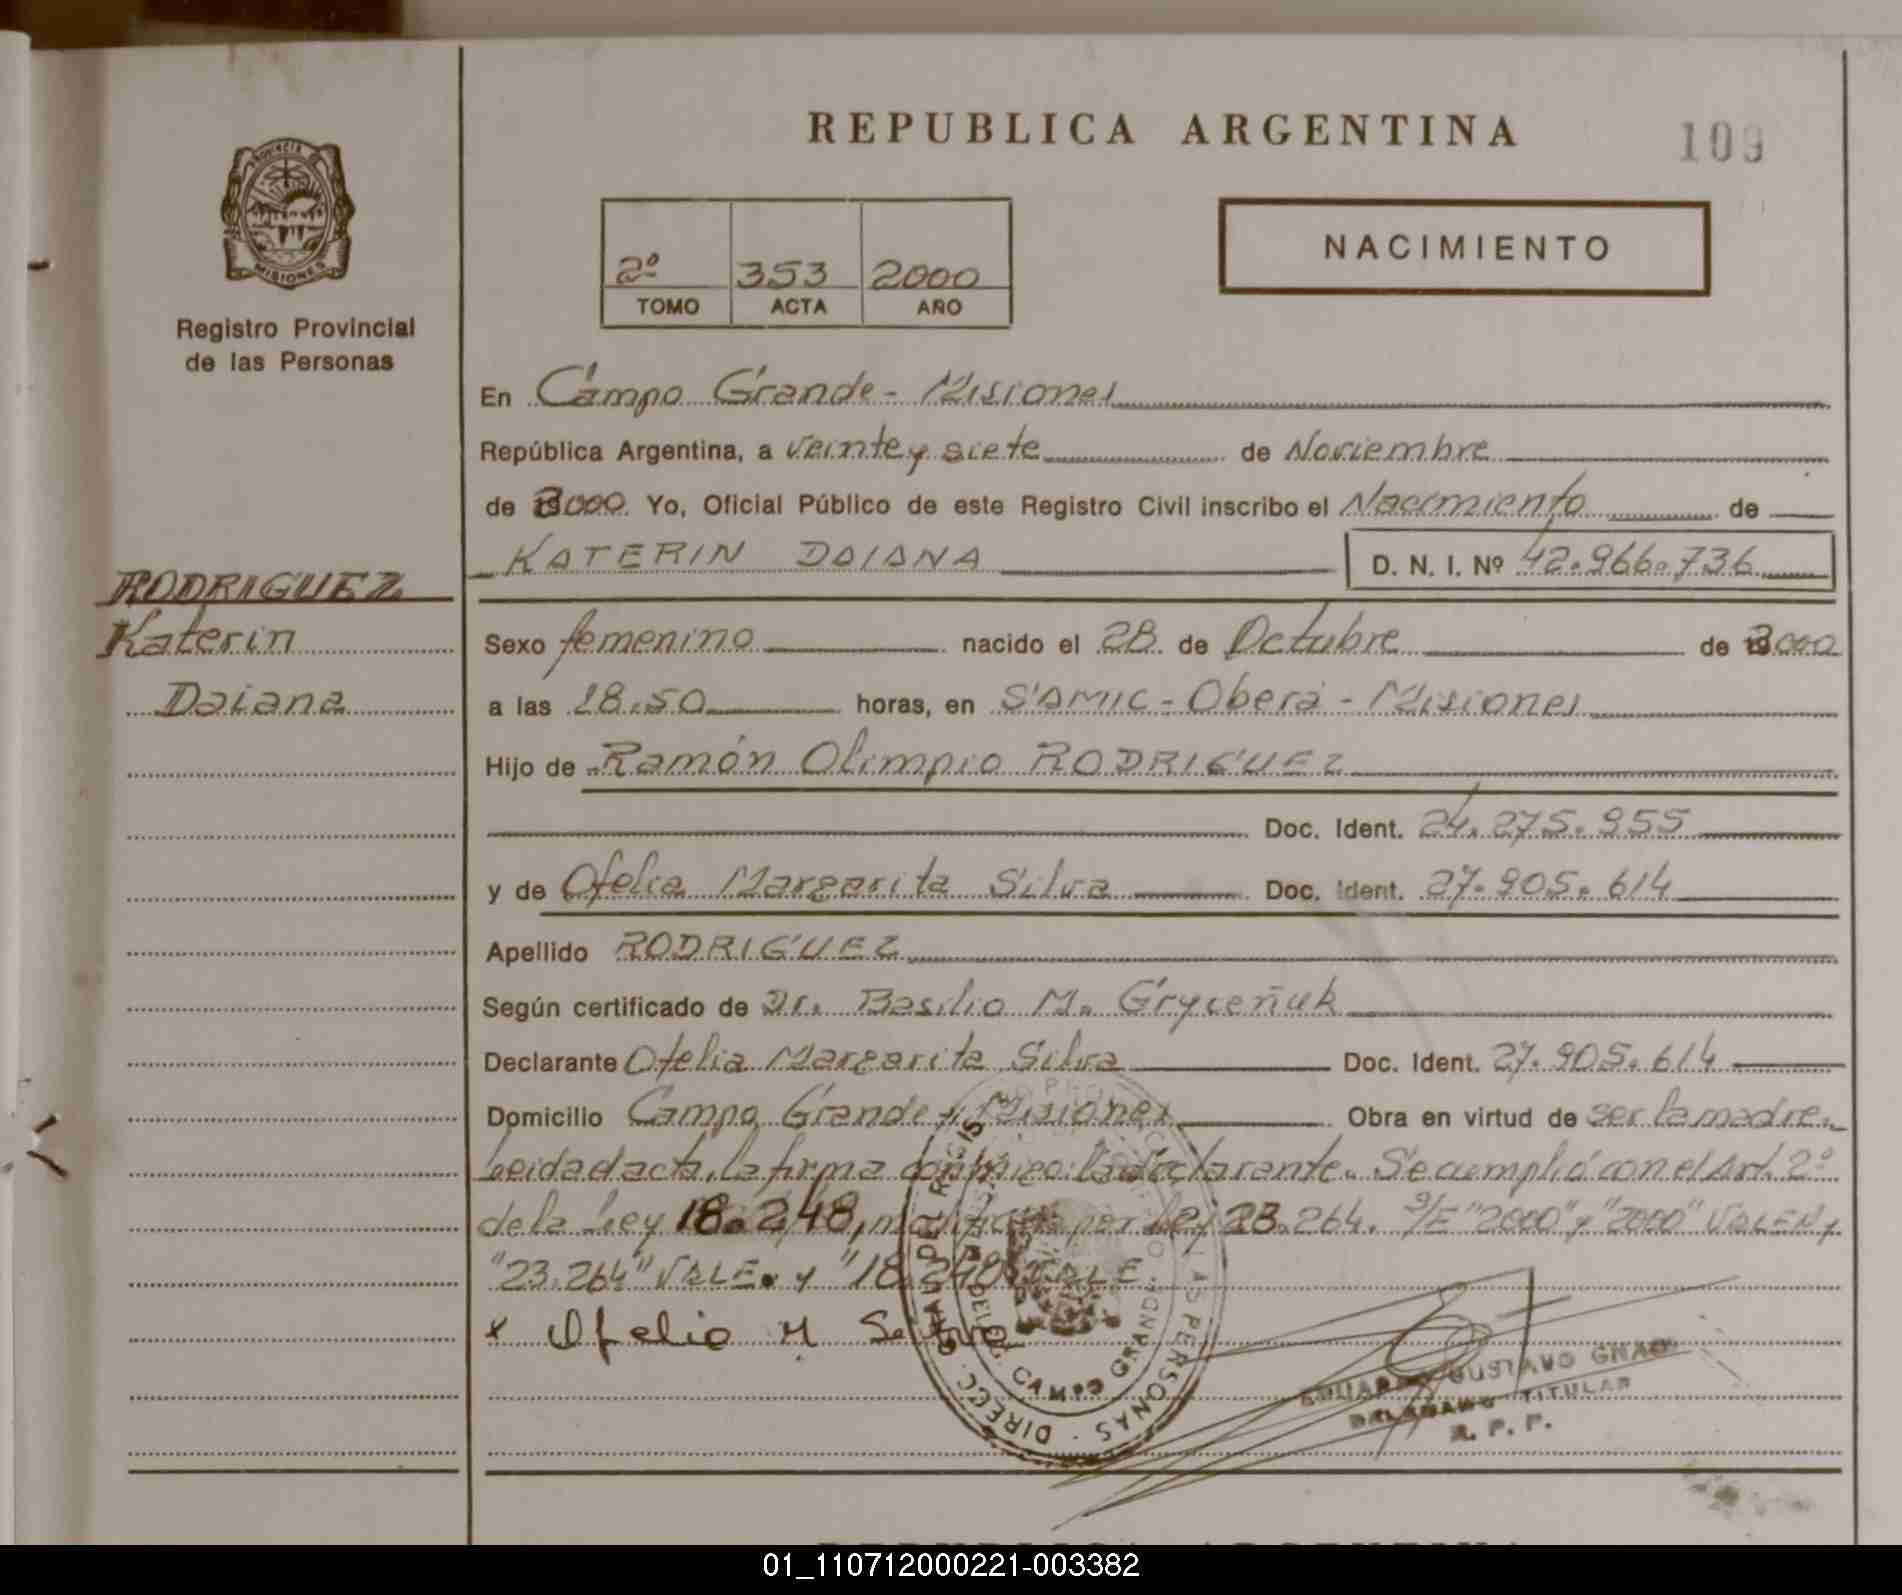 REPUBLICA ARGENTINA
109
PROVINCIA DE
MISIONES
Registro Provincial
de las Personas
2º 353 2000
TOMO ACTA AÑO
NACIMIENTO
En Campo Grande - Misiones
República Argentina, a veinte y siete de Noviembre
de 2000 Yo, Oficial Público de este Registro Civil inscribo el Nacimiento de
KATERIN DAIANA D. N. I. Nº 42.966.736
RODRIGUEZ
Katerin
Daiana
Sexo femenino nacido el 28 de Octubre de 2000
a las 18.50 horas, en SAMIC - Oberá - Misiones
Hijo de Ramón Olimpio RODRIGUEZ
Doc. Ident. 24.275.955
y de Ofelia Margarita Silva Doc. Ident. 27.905.614
Apellido RODRIGUEZ
Según certificado de Dr. Basilio M. Gryceñuk
Declarante Ofelia Margarita Silva Doc. Ident. 27.905.614
Domicilio Campo Grande - Misiones Obra en virtud de ser la madre.
Leida el acta, la firma conmigo la declarante. Se cumplió con el Art. 2º
de la Ley 18.248, modificado por Ley 23.264. S/E "2000" y "2000" VALEN y
"23.264" VALE. y "18.248" VALE
x Ofelia M Silva
DIRECC. GRAL. DEL REGIS PERSONAS
CAMPO GRANDE
GUSTAVO
TITULAR
R. P. P.
01_110712000221-003382